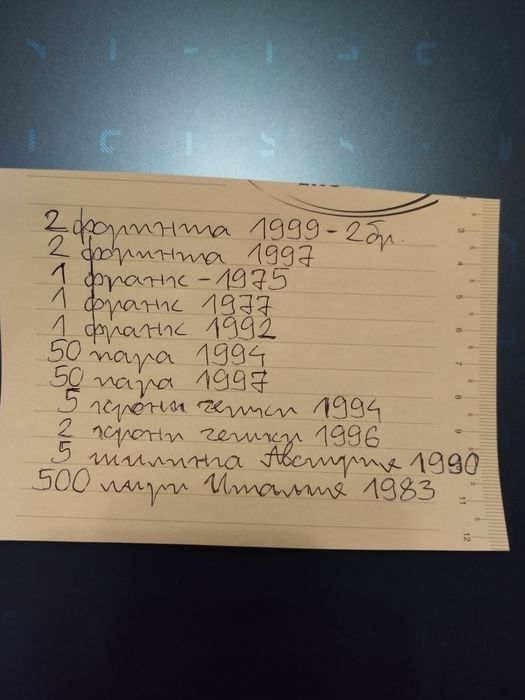 2 форинта 1999 - 2бр.
2 форинта 1997
1 франк - 1975
1 франк 1977
1 франк 1992
50 пара 1994
50 пара 1997
5 крони чешки 1994
2 крони чешки 1996
5 шилинга Австрия 1990
500 лири Италия 1983
3
4
5
6
7
8
9
11
12